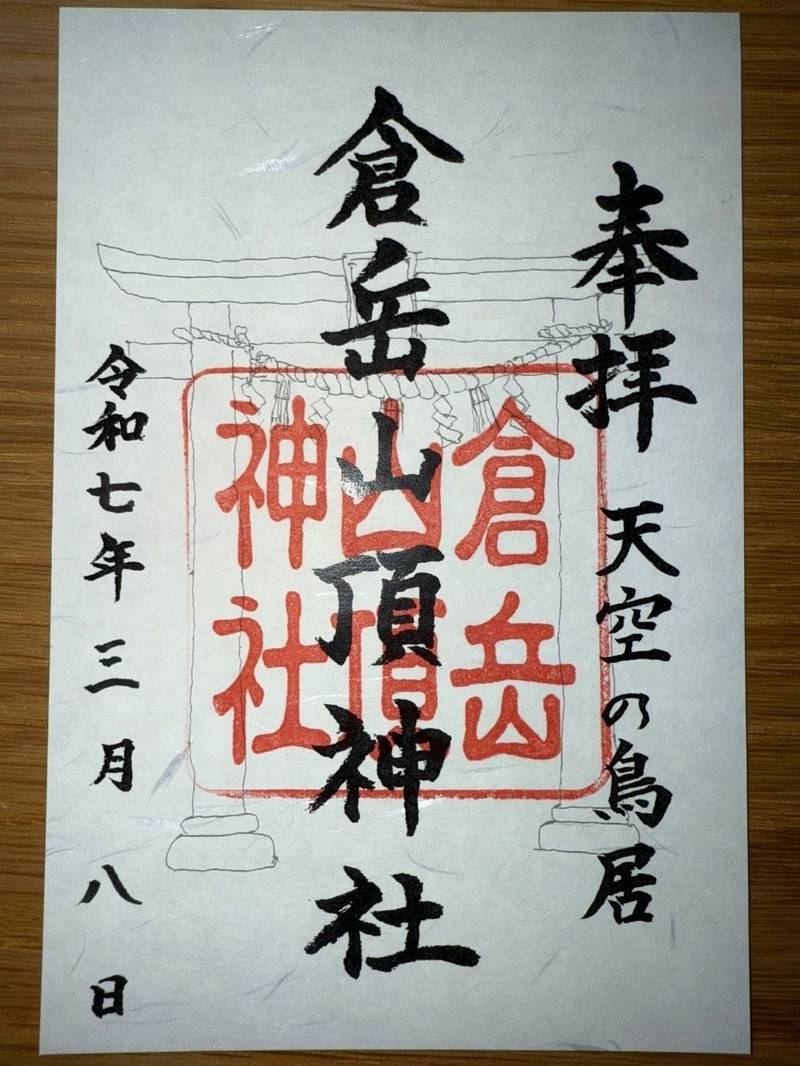 奉拝 天空の鳥居
倉岳山頂神社
令和七年三月八日
倉岳
山
神社